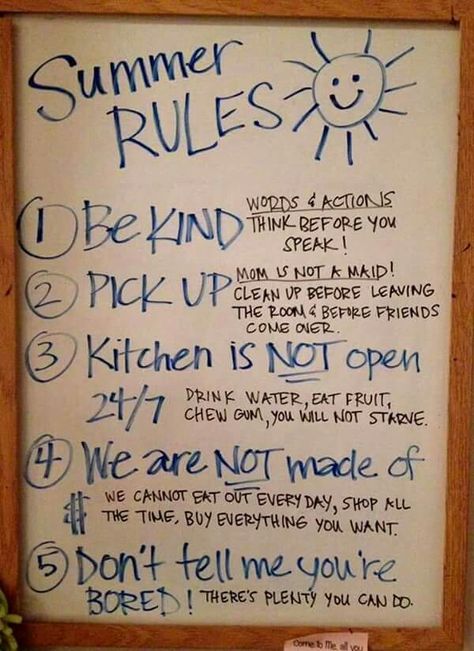 Summer
RULES
① Be KIND
WORDS & ACTIONS
THINK BEFORE YOU
SPEAK!
② PICK UP
MOM IS NOT A MAID!
CLEAN UP BEFORE LEAVING
THE ROOM & BEFORE FRIENDS
COME OVER.
③ Kitchen is NOT open
24/7
DRINK WATER, EAT FRUIT,
CHEW GUM, YOU WILL NOT STARVE.
④ We are NOT made of
$
WE CANNOT EAT OUT EVERY DAY, SHOP ALL
THE TIME, BUY EVERYTHING YOU WANT.
⑤ Don't tell me you're
BORED! THERE'S PLENTY YOU CAN DO.
Come to Me, all you